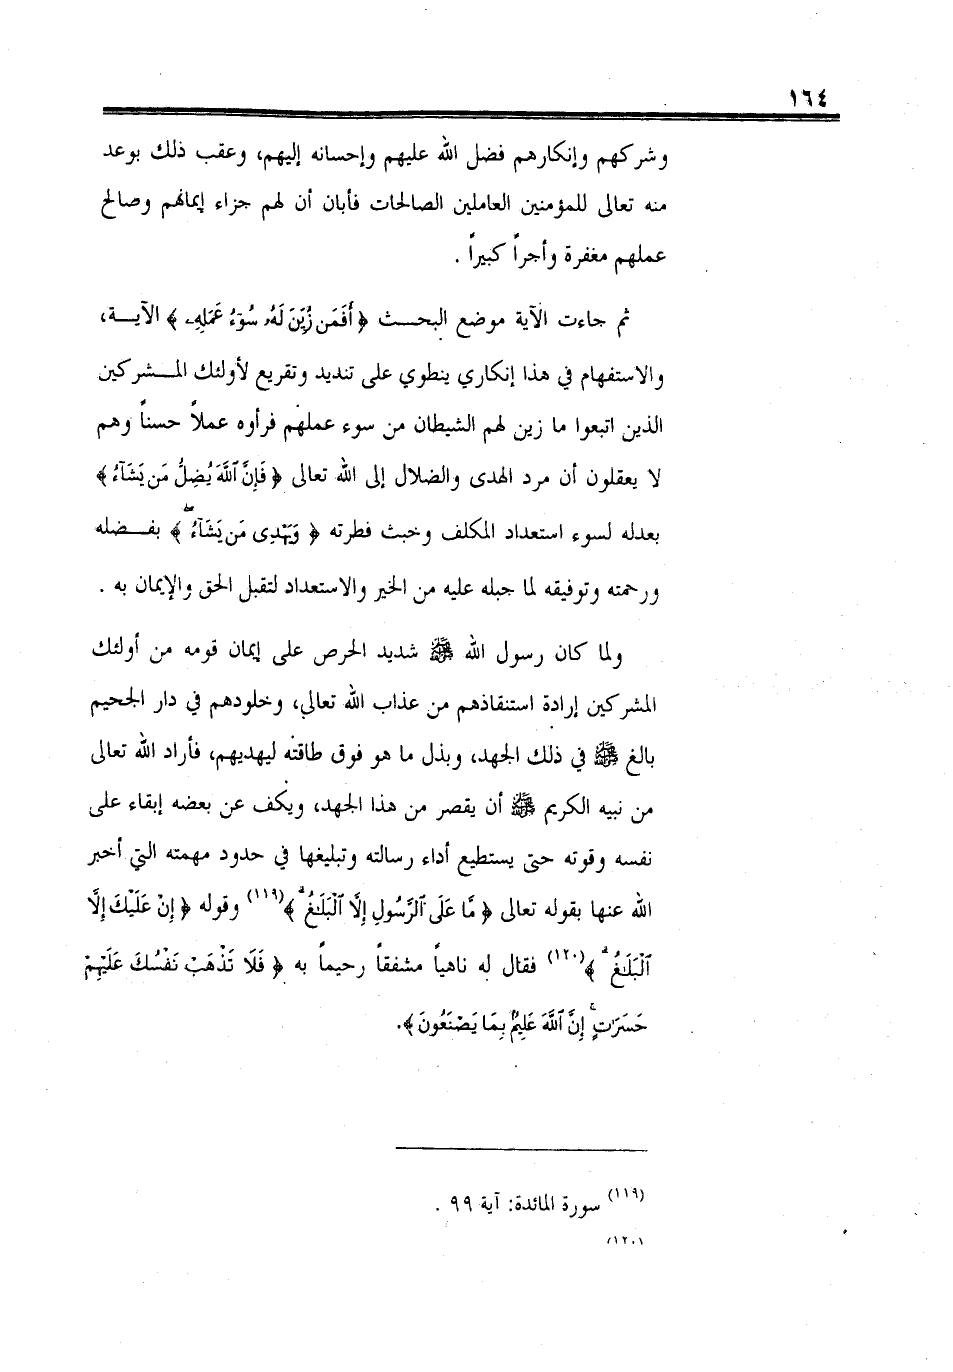 ١٦٤
وشركهم وإنكارهم فضل الله عليهم وإحسانه إليهم، وعقب ذلك بوعد
منه تعالى للمؤمنين العاملين الصالحات فأبان أن لهم جزاء إيمانهم وصالح
عملهم مغفرة وأجراً كبيراً .
ثم جاءت الآية موضع البحث ﴿ أَفَمَن زُيِّنَ لَهُۥ سُوٓءُ عَمَلِهِۦ ﴾ الآية،
والاستفهام في هذا إنكاري ينطوي على تنديد وتقريع لأولئك المشركين
الذين اتبعوا ما زين لهم الشيطان من سوء عملهم فرأوه عملاً حسناً وهم
لا يعقلون أن مرد الهدى والضلال إلى الله تعالى ﴿ فَإِنَّ ٱللَّهَ يُضِلُّ مَن يَشَآءُ ﴾
بعدله لسوء استعداد المكلف وخبث فطرته ﴿ وَيَهْدِى مَن يَشَآءُ ۖ ﴾ بفضله
ورحمته وتوفيقه لما جبله عليه من الخير والاستعداد لتقبل الحق والإيمان به .
ولما كان رسول الله ﷺ شديد الحرص على إيمان قومه من أولئك
المشركين إرادة استنقاذهم من عذاب الله تعالى، وخلودهم في دار الجحيم
بالغ ﷺ في ذلك الجهد، وبذل ما هو فوق طاقته ليهديهم، فأراد الله تعالى
من نبيه الكريم ﷺ أن يقصر من هذا الجهد، ويكف عن بعضه إبقاء على
نفسه وقوته حتى يستطيع أداء رسالته وتبليغها في حدود مهمته التي أخبر
الله عنها بقوله تعالى ﴿ مَّا عَلَى ٱلرَّسُولِ إِلَّا ٱلْبَلَٰغُ ۗ ﴾(١١٩) وقوله ﴿ إِنْ عَلَيْكَ إِلَّا
ٱلْبَلَٰغُ ۗ ﴾(١٢٠) فقال له ناهياً مشفقاً رحيماً به ﴿ فَلَا تَذْهَبْ نَفْسُكَ عَلَيْهِمْ
حَسَرَٰتٍ ۚ إِنَّ ٱللَّهَ عَلِيمٌۢ بِمَا يَصْنَعُونَ ﴾.
(١١٩) سورة المائدة: آية ٩٩ .
(١٢٠)